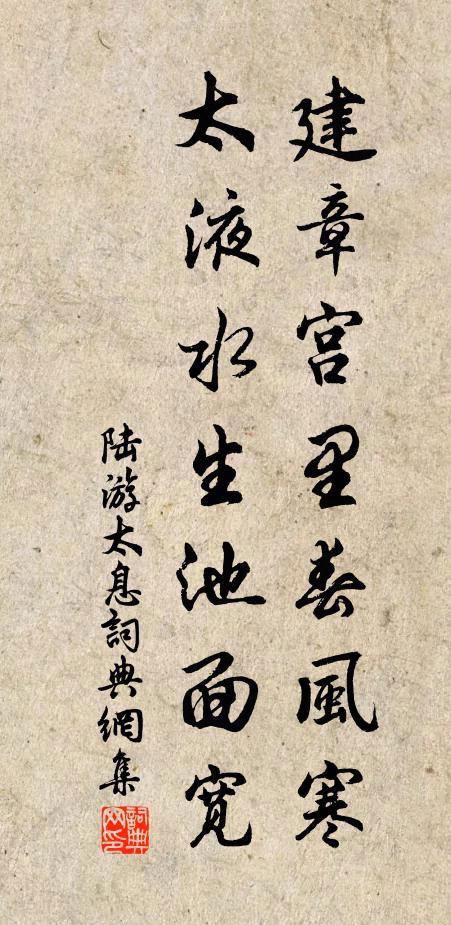 建章宫里春風寒
太液水生池面寬
陆游太息詞典網集
詞典网印